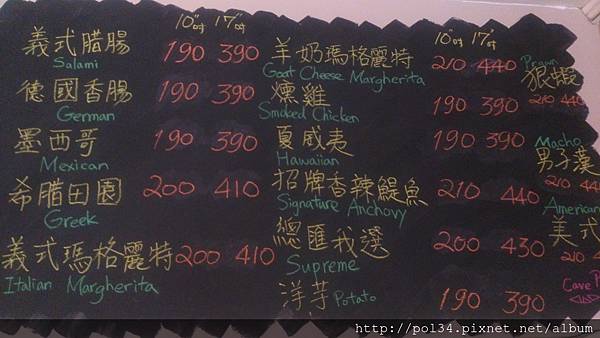 10"吋 17"吋
義式腊腸 190 390
Salami
德國香腸 190 390
German
墨西哥 190 390
Mexican
希腊田園 200 410
Greek
義式瑪格麗特 200 410
Italian Margherita
10"吋 17"吋
羊奶瑪格麗特 210 440
Goat Cheese Margherita
燻雞 190 390
Smoked Chicken
夏威夷 190 390
Hawaiian
招牌香辣鯷魚 210 440
Signature Anchovy
總匯我選 200 430
Supreme
洋芋 Potato 190 390
Prawn
狠蝦
210 440
Macho
男子漢
210 4
American
美式
210 4
Cave P
http://pol34.pixnet.net/album